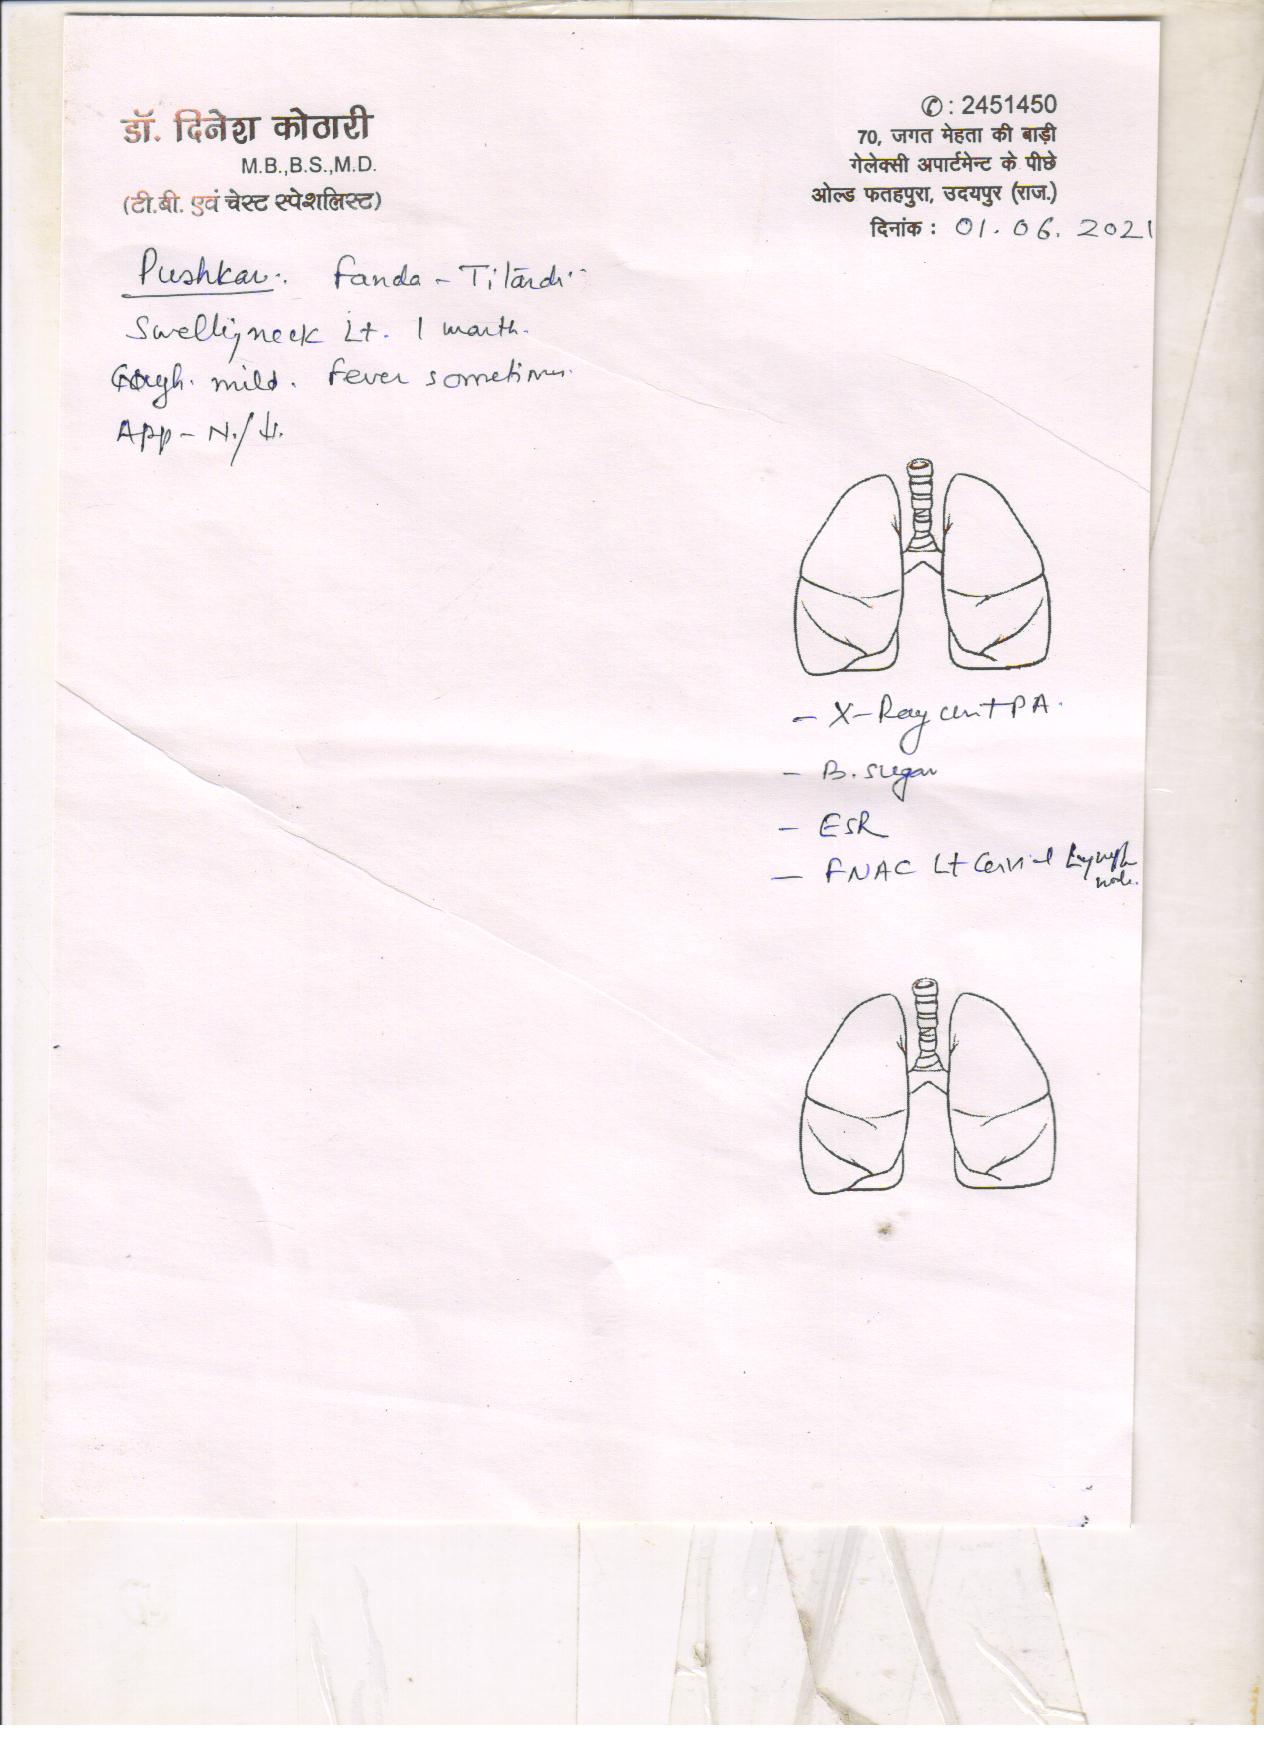 डॉ. दिनेश कोठारी
M.B.,B.S.,M.D.
(टी.बी. एवं चेस्ट स्पेशलिस्ट)
✆ : 2451450
70, जगत मेहता की बाड़ी
गेलेक्सी अपार्टमेन्ट के पीछे
ओल्ड फतहपुरा, उदयपुर (राज.)
दिनांक : 01.06.2021
Pushkar. Fanda - Titardi
Swelling neck Lt. 1 month.
Cough. mild. Fever sometimes.
App - N./↓.
- X-Ray chest PA.
- B. sugar
- ESR
- FNAC Lt Cervical Lymph
node.